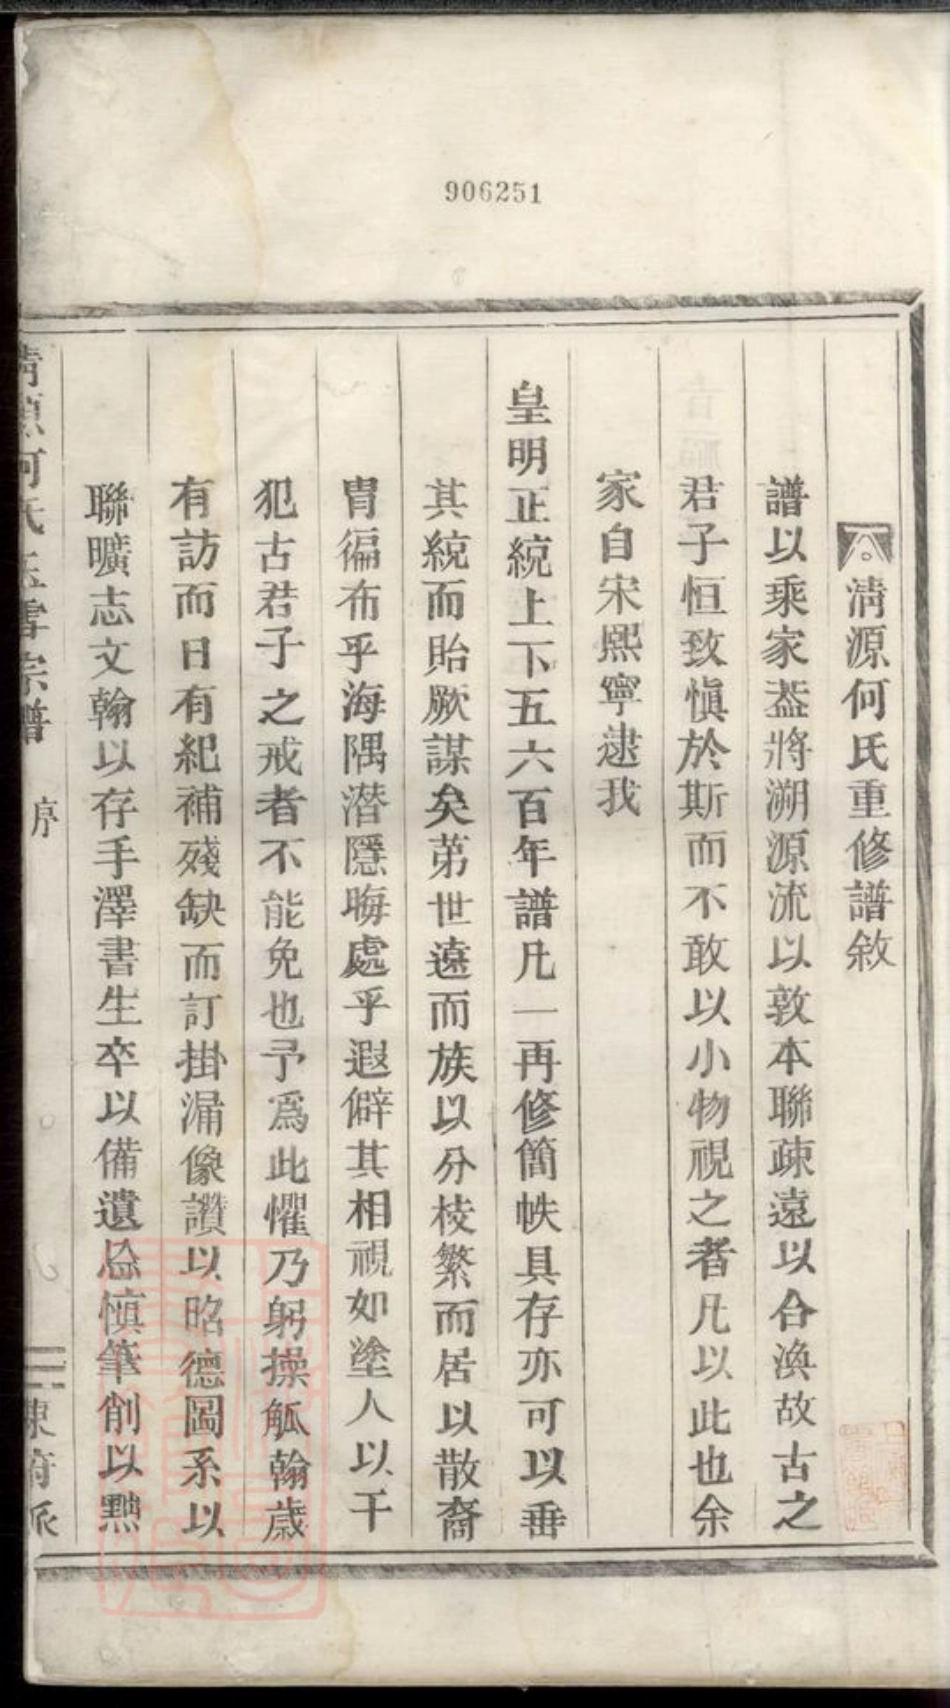 906251
清源何氏重修譜敘
譜以乘家葢將溯源流以敦本聯疎遠以合渙故古之
君子恒致愼於斯而不敢以小物視之者凡以此也余
家自宋熙寧逮我
皇明正統上下五六百年譜凡一再修簡帙具存亦可以垂
其統而貽厥謀矣第世遠而族以分枝繁而居以散裔
胄徧布乎海隅潛隱晦處乎遐僻其相視如塗人以干
犯古君子之戒者不能免也予爲此懼乃躬操觚翰歲
有訪而日有紀補殘缺而訂掛漏像讚以昭德圖系以
聯曠志文翰以存手澤書生卒以備遺忘愼筆削以黜
清源何氏玉雪宗譜
序
二
東府派